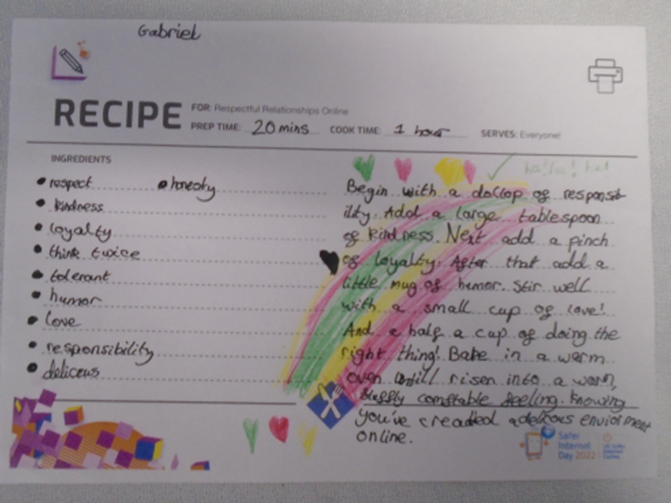 Gabriel
RECIPE
FOR: Respectful Relationships Online
PREP TIME: 20 mins COOK TIME: 1 hour SERVES: Everyone!
INGREDIENTS
• respect • honesty
• kindness
• loyalty
• think twice
• tolerant
• humor
• love
• responsibility
• delicous
Begin with a dollop of responsib
ility. Add a large tablespoon
of kindness. Next add a pinch
of loyalty. After that add a
little mug of humor. Stir well
with a small cup of love!
And a half a cup of doing the
right thing! Bake in a warm
oven until risen into a warm,
comftable feeling. Knowing
you've creadted a delicous enviorment
online.
Safer
Internet
Day 2022